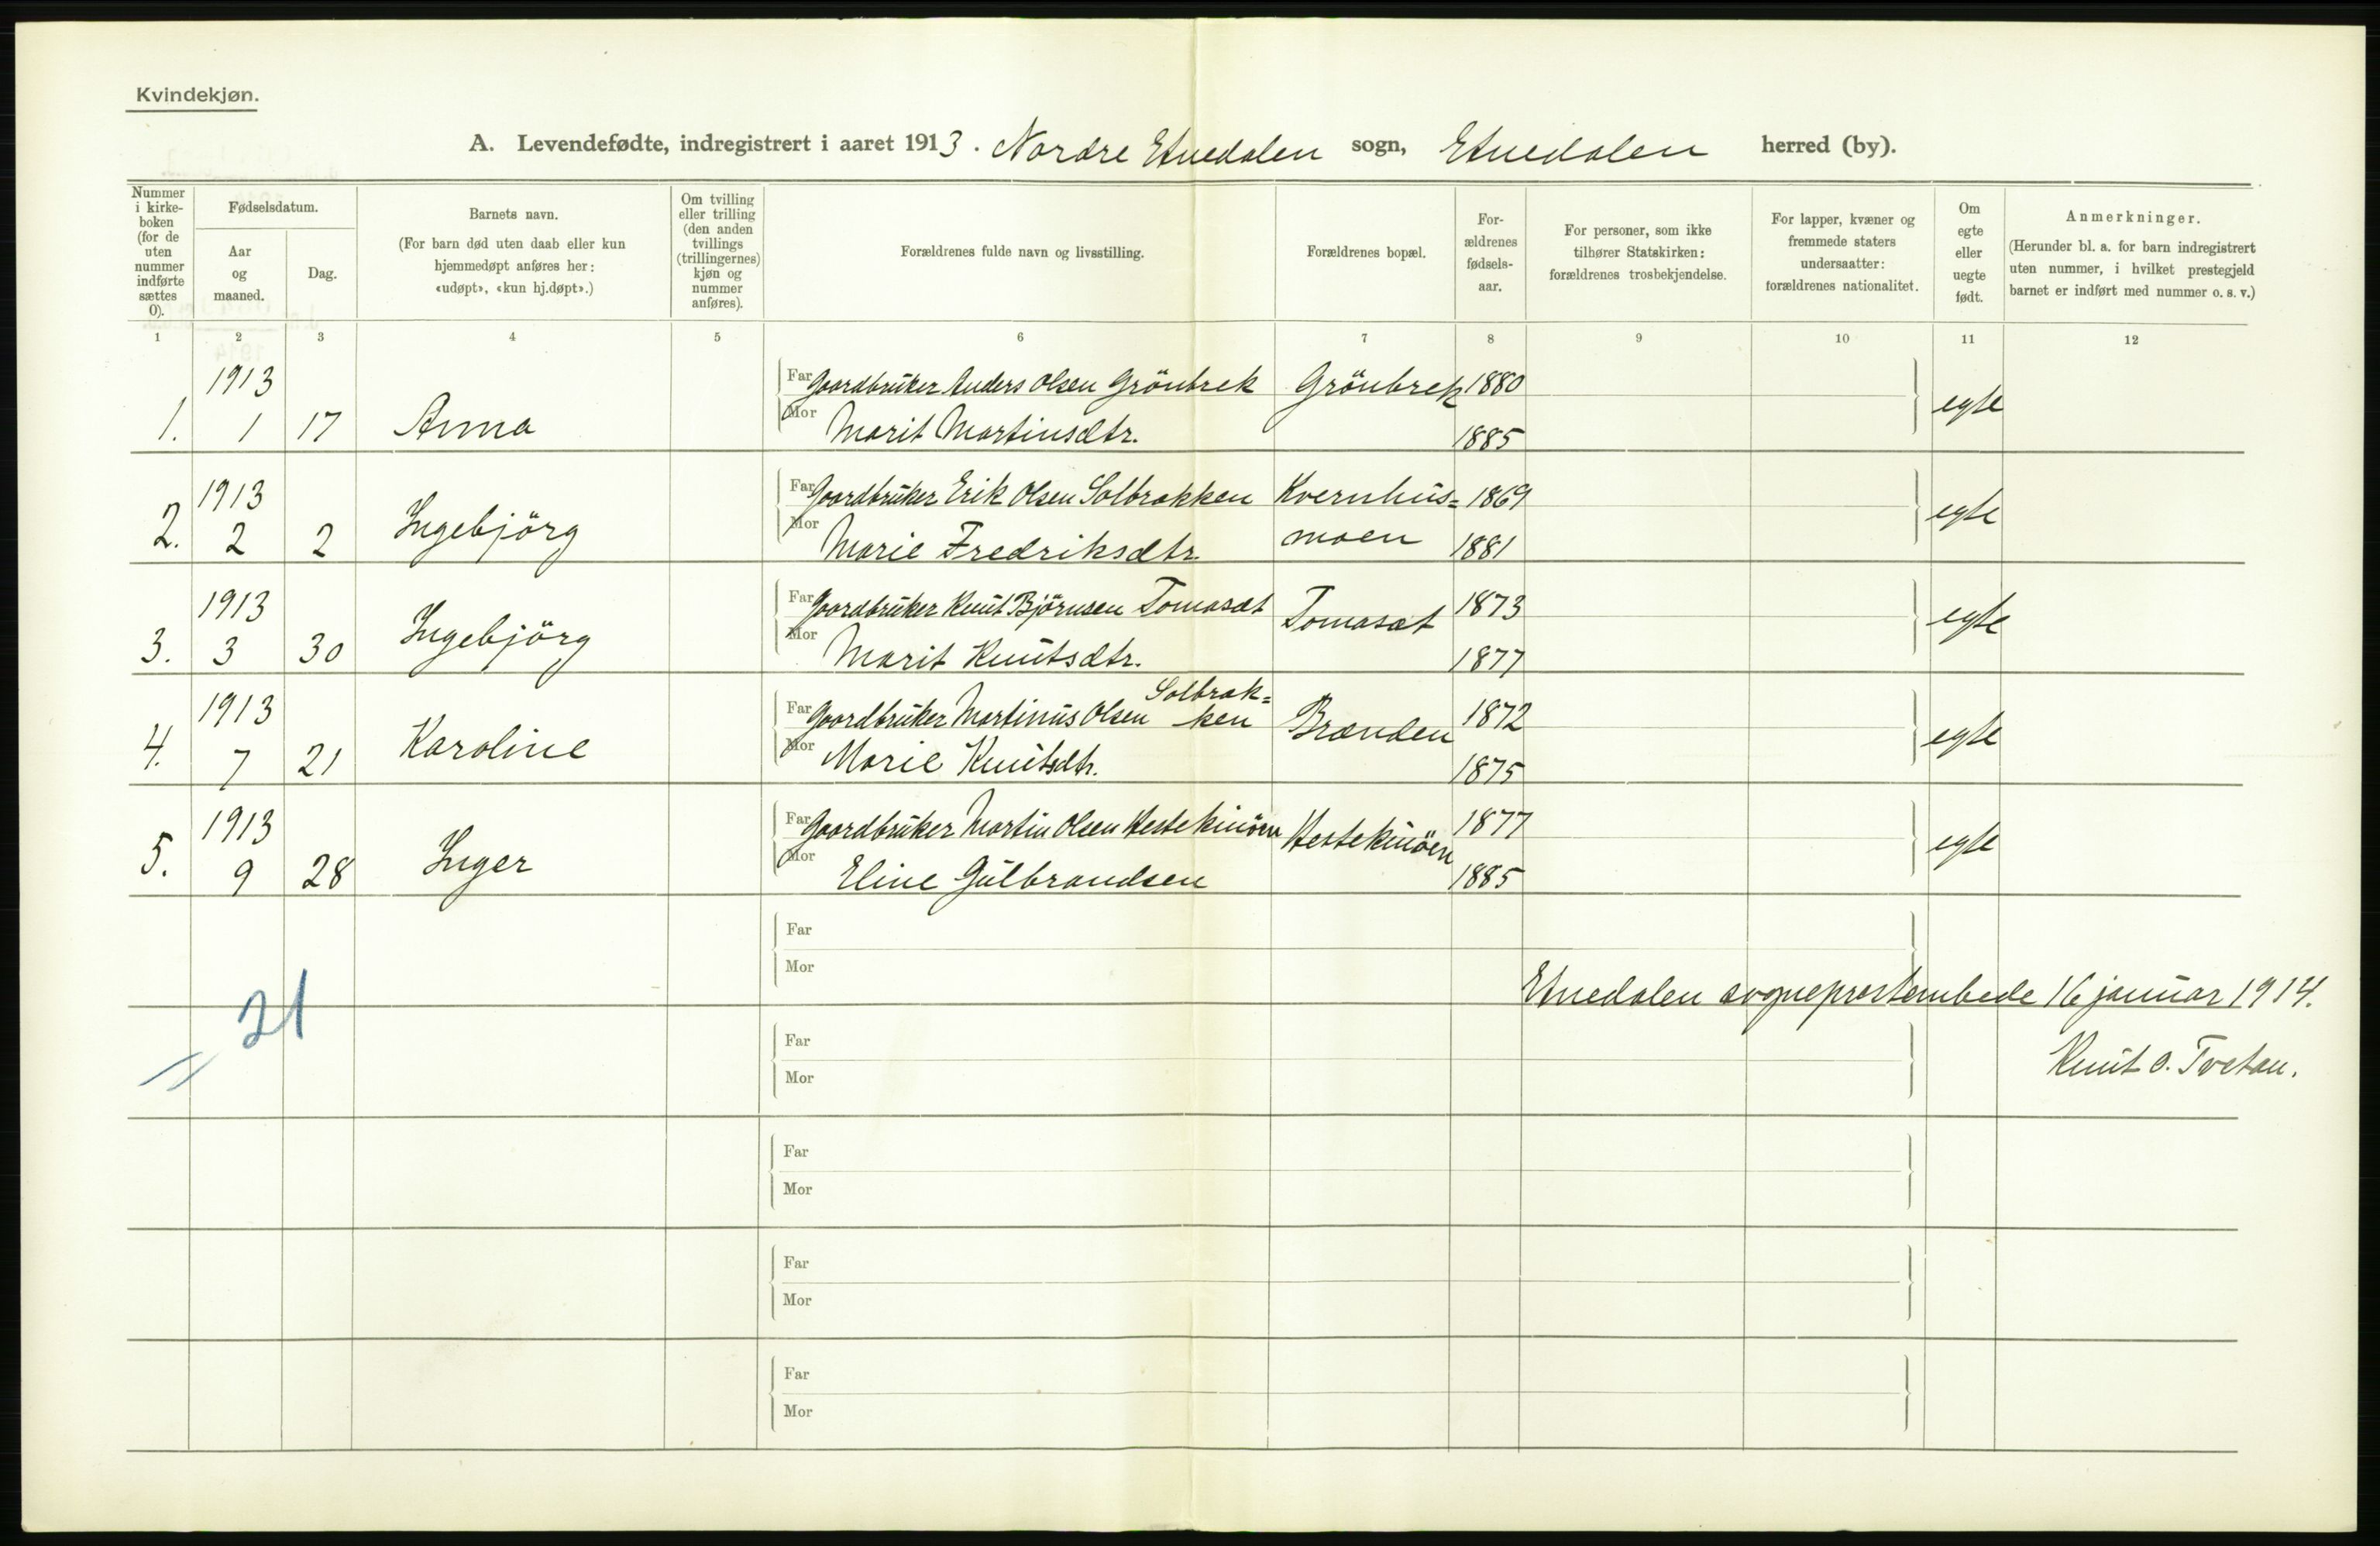 Kvindekjøn.
A. Levendefødte, indregistrert i aaret 1913. Nordre Etnedalen sogn, Etnedalen herred (by).
Nummer i kirke-boken (for de uten nummer indførte sættes 0).
Fødselsdatum.
Aar og maaned.
Dag.
Barnets navn.
(For barn død uten daab eller kun hjemmedøpt anføres her: «udøpt», «kun hj.døpt».)
Om tvilling eller trilling (den anden tvillings (trillingernes) kjøn og nummer anføres).
Forældrenes fulde navn og livsstilling.
Forældrenes bopæl.
For-ældrenes fødsels-aar.
For personer, som ikke tilhører Statskirken: forældrenes trosbekjendelse.
For lapper, kvæner og fremmede staters undersaatter: forældrenes nationalitet.
Om egte eller uegte født.
Anmerkninger.
(Herunder bl. a. for barn indregistrert uten nummer, i hvilket prestegjeld barnet er indført med nummer o. s. v.)
1 2 3 4 5 6 7 8 9 10 11 12
1913 Far Gaardbruker Anders Olsen Grönbrek Grönbrek 1880
1. 1 17 Anna Mor Marit Martinsdtr. 1885 egte
1913 Far Gaardbruker Erik Olsen Solbrakken Kvernhus= 1869
2. 2 2 Ingebjörg Mor Marie Fredriksdtr. moen 1881 egte
1913 Far Gaardbruker Knut Björnsen Tomasæt Tomasæt 1873
3. 3 30 Ingebjörg Mor Marit Knutsdtr. 1877 egte
1913 Far Gaardbruker Martinus Olsen Solbrak=ken Brænden 1872
4. 7 21 Karoline Mor Marie Knutsdtr. 1875 egte
1913 Far Gaardbruker Martin Olsen Hestekinöen Hestekinöen 1877
5. 9 28 Inger Mor Eline Gulbrandsen 1885 egte
Far
Mor
Etnedalen sogneprestembede 16 januar 1914.
21
Far
Knut O. Tvetan.
Mor
Far
Mor
Far
Mor
Far
Mor